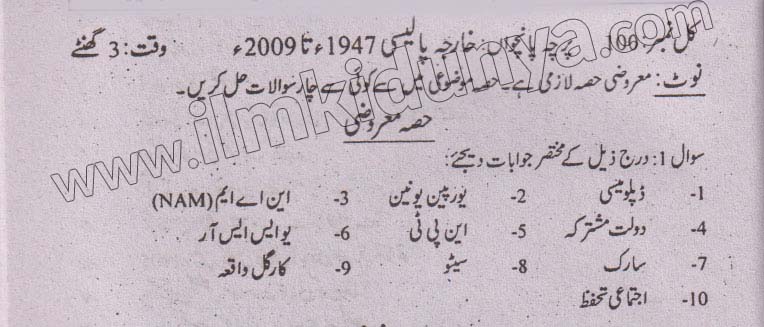 کل نمبر: 100 پرچہ پانچواں: خارجہ پالیسی 1947ء تا 2009ء وقت: 3 گھنٹے
نوٹ: معروضی حصہ لازمی ہے۔ حصہ موضوعی میں سے کوئی سے چار سوالات حل کریں۔
حصہ معروضی
سوال 1: درج ذیل کے مختصر جوابات دیجئے:
1- ڈپلومیسی 2- یورپین یونین 3- این اے ایم (NAM)
4- دولت مشترکہ 5- این پی ٹی 6- یو ایس ایس آر
7- سارک 8- سیٹو 9- کارگل واقعہ
10- اجتماعی تحفظ
www.ilmkidunya.com